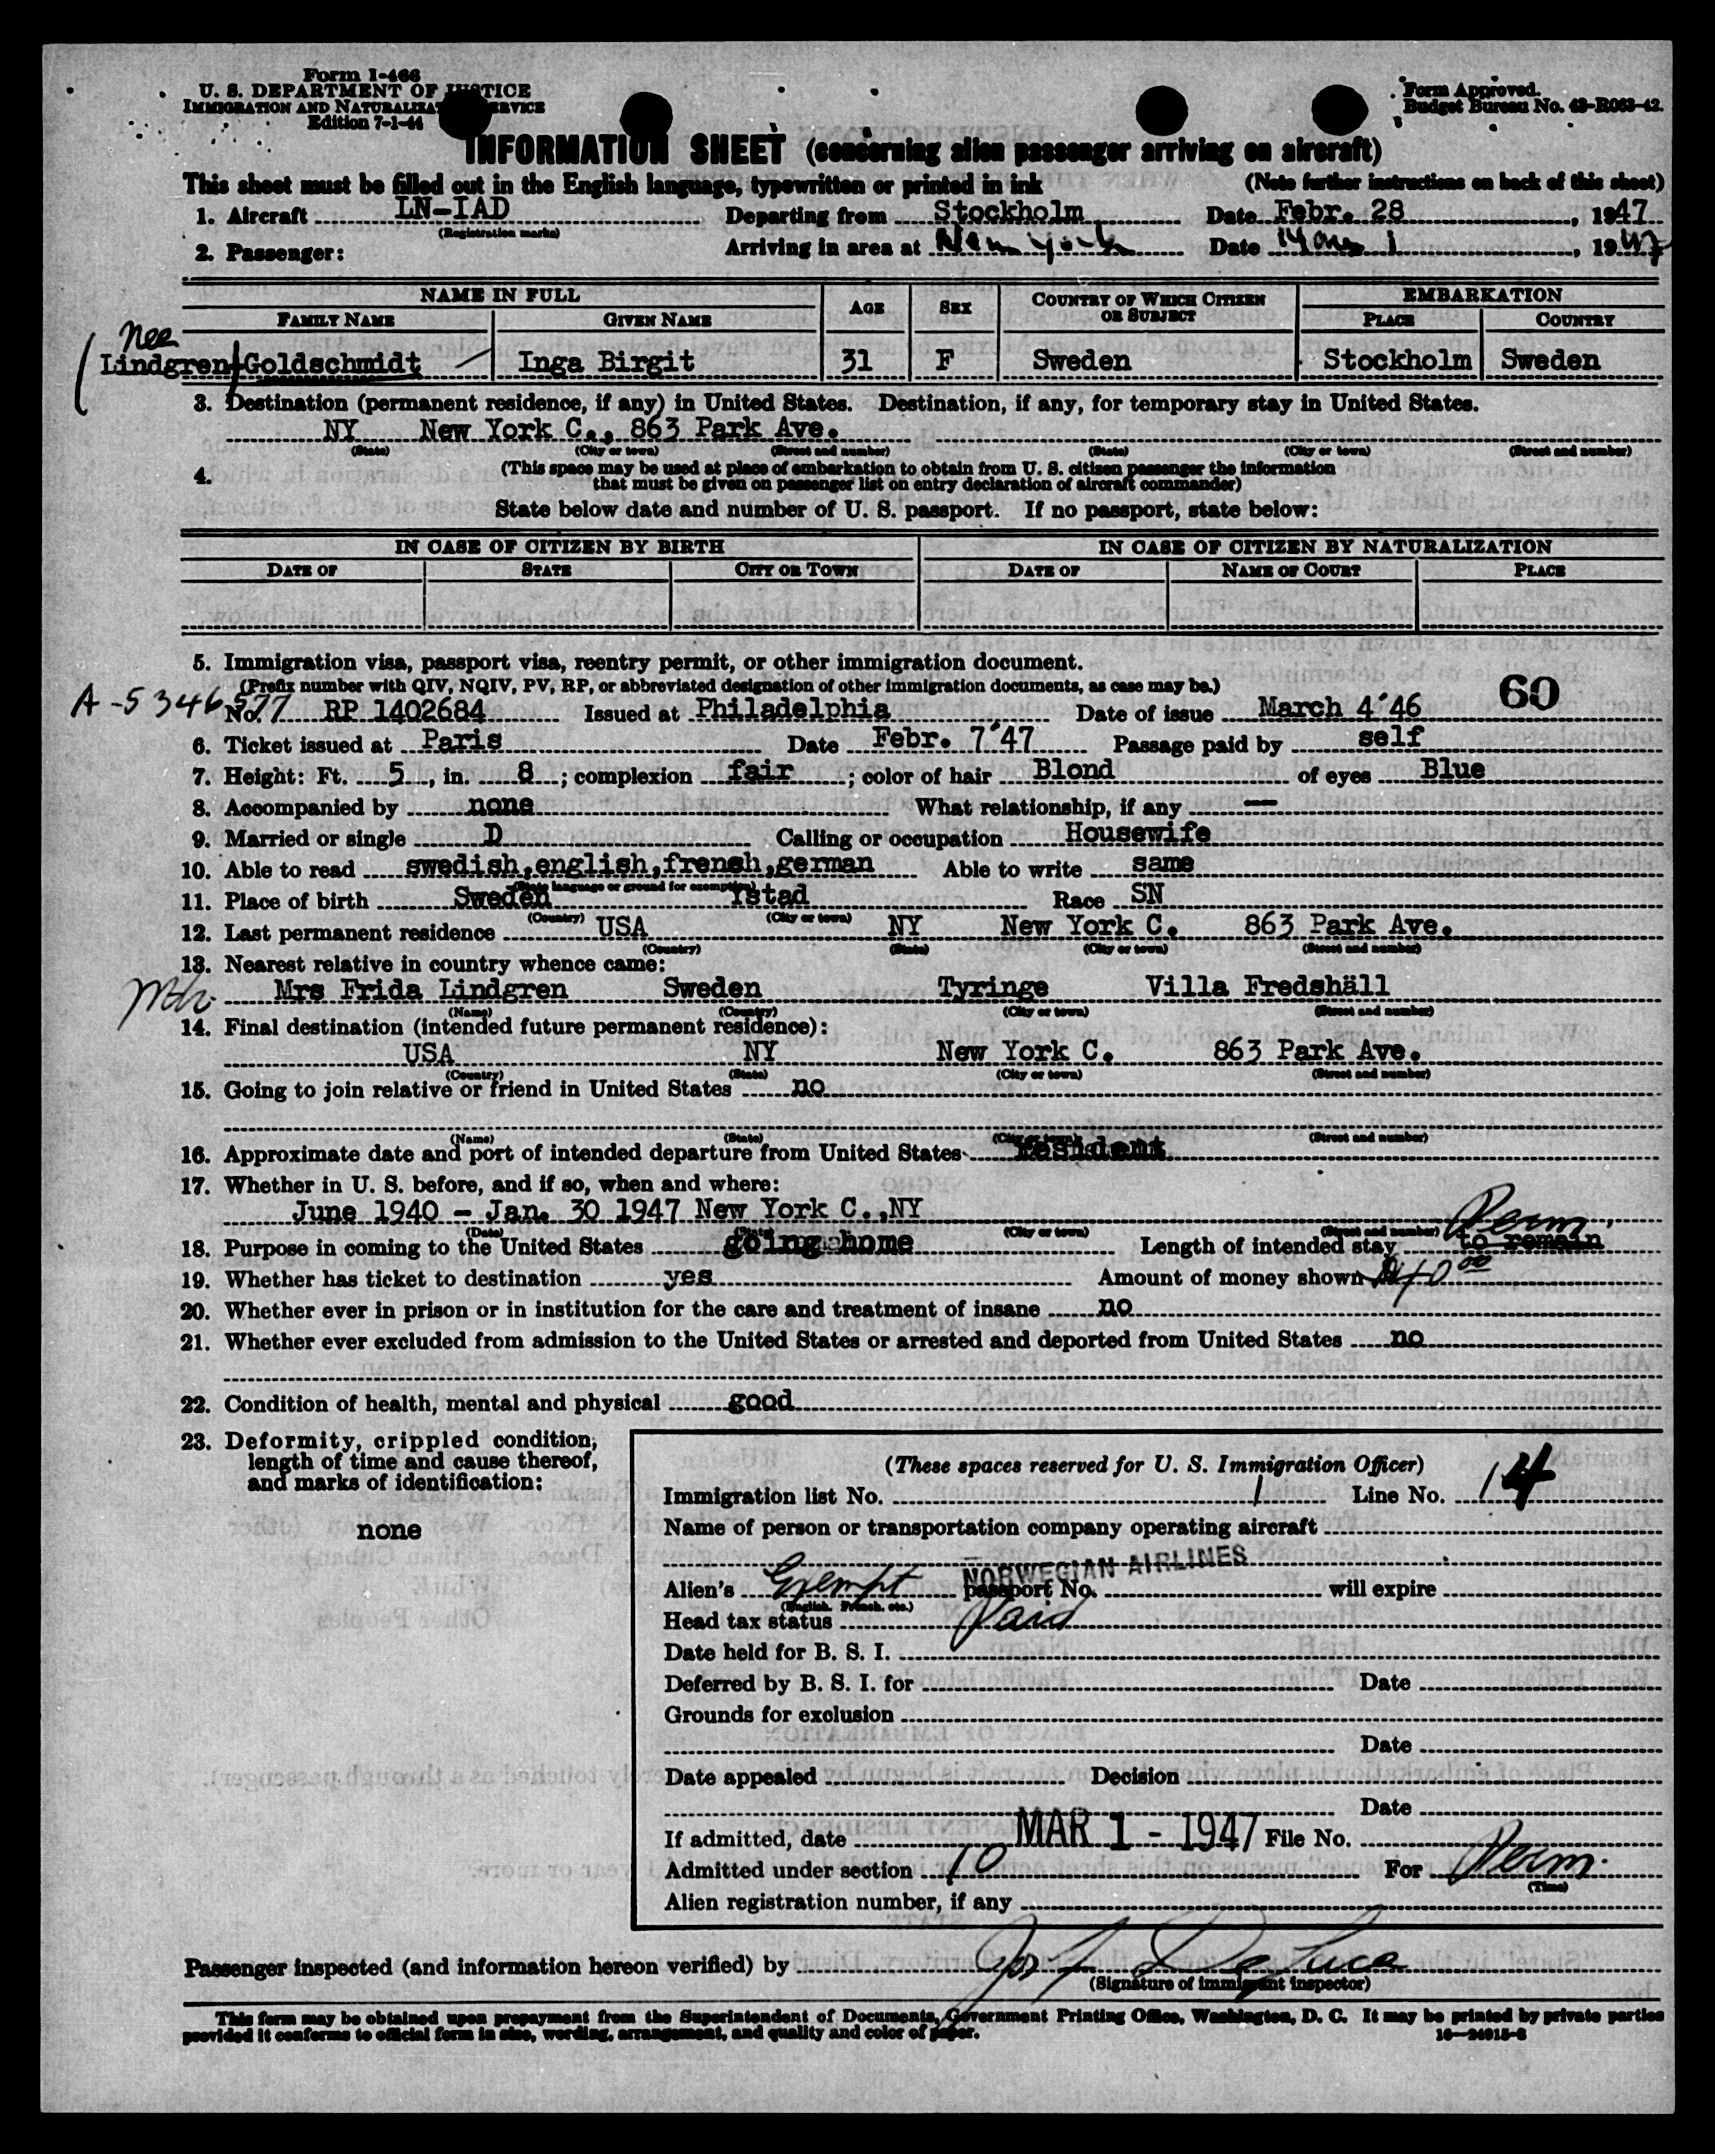 Form I-466
U. S. DEPARTMENT OF JUSTICE
IMMIGRATION AND NATURALIZATION SERVICE
Edition 7-1-44
Form Approved.
Budget Bureau No. 43-R063-42.
INFORMATION SHEET (concerning alien passenger arriving on aircraft)
This sheet must be filled out in the English language, typewritten or printed in ink (Note further instructions on back of this sheet)
1. Aircraft LN-IAD Departing from Stockholm Date Febr. 28, 1947
(Registration marks)
2. Passenger: Arriving in area at New York Date Mar 1, 1947
NAME IN FULL AGE SEX COUNTRY OF WHICH CITIZEN OR SUBJECT EMBARKATION
FAMILY NAME GIVEN NAME PLACE COUNTRY
(nee
Lindgren Goldschmidt Inga Birgit 31 F Sweden Stockholm Sweden
3. Destination (permanent residence, if any) in United States. Destination, if any, for temporary stay in United States.
NY New York C., 863 Park Ave.
(State) (City or town) (Street and number) (State) (City or town) (Street and number)
4. (This space may be used at place of embarkation to obtain from U. S. citizen passenger the information
that must be given on passenger list on entry declaration of aircraft commander)
State below date and number of U. S. passport. If no passport, state below:
IN CASE OF CITIZEN BY BIRTH IN CASE OF CITIZEN BY NATURALIZATION
DATE OF STATE CITY OR TOWN DATE OF NAME OF COURT PLACE
5. Immigration visa, passport visa, reentry permit, or other immigration document.
(Prefix number with QIV, NQIV, PV, RP, or abbreviated designation of other immigration documents, as case may be.)
A-5346577 60
No. RP 1402684 Issued at Philadelphia Date of issue March 4'46
6. Ticket issued at Paris Date Febr. 7'47 Passage paid by self
7. Height: Ft. 5, in. 8; complexion fair; color of hair Blond of eyes Blue
8. Accompanied by none What relationship, if any —
9. Married or single D Calling or occupation Housewife
10. Able to read swedish,english,french,german Able to write same
(State language or ground for exemption)
11. Place of birth Sweden Ystad Race SN
(Country) (City or town)
12. Last permanent residence USA NY New York C. 863 Park Ave.
(Country) (State) (City or town) (Street and number)
13. Nearest relative in country whence came:
Mrs Frida Lindgren Sweden Tyringe Villa Fredshäll
(Name) (Country) (City or town) (Street and number)
14. Final destination (intended future permanent residence):
USA NY New York C. 863 Park Ave.
(Country) (State) (City or town) (Street and number)
15. Going to join relative or friend in United States no
(Name) (State) (City or town) (Street and number)
16. Approximate date and port of intended departure from United States resident
17. Whether in U. S. before, and if so, when and where:
June 1940 - Jan. 30 1947 New York C.,NY
(Date) (State) (City or town) (Street and number)
Perm.
18. Purpose in coming to the United States going home Length of intended stay to remain
19. Whether has ticket to destination yes Amount of money shown $40 00
20. Whether ever in prison or in institution for the care and treatment of insane no
21. Whether ever excluded from admission to the United States or arrested and deported from United States no
22. Condition of health, mental and physical good
23. Deformity, crippled condition,
length of time and cause thereof,
and marks of identification:
none
(These spaces reserved for U. S. Immigration Officer)
Immigration list No. 1 Line No. 14
Name of person or transportation company operating aircraft
NORWEGIAN AIRLINES
Alien's Exempt passport No. will expire
(English, French, etc.)
Head tax status Paid
Date held for B. S. I.
Deferred by B. S. I. for Date
Grounds for exclusion
Date
Date appealed Decision
Date
If admitted, date MAR 1 - 1947 File No.
Admitted under section 10 For Perm.
(Time)
Alien registration number, if any
Passenger inspected (and information hereon verified) by De Luca
(Signature of immigrant inspector)
This form may be obtained upon prepayment from the Superintendent of Documents, Government Printing Office, Washington, D. C. It may be printed by private parties
provided it conforms to official form in size, wording, arrangement, and quality and color of paper. 16—24015-3